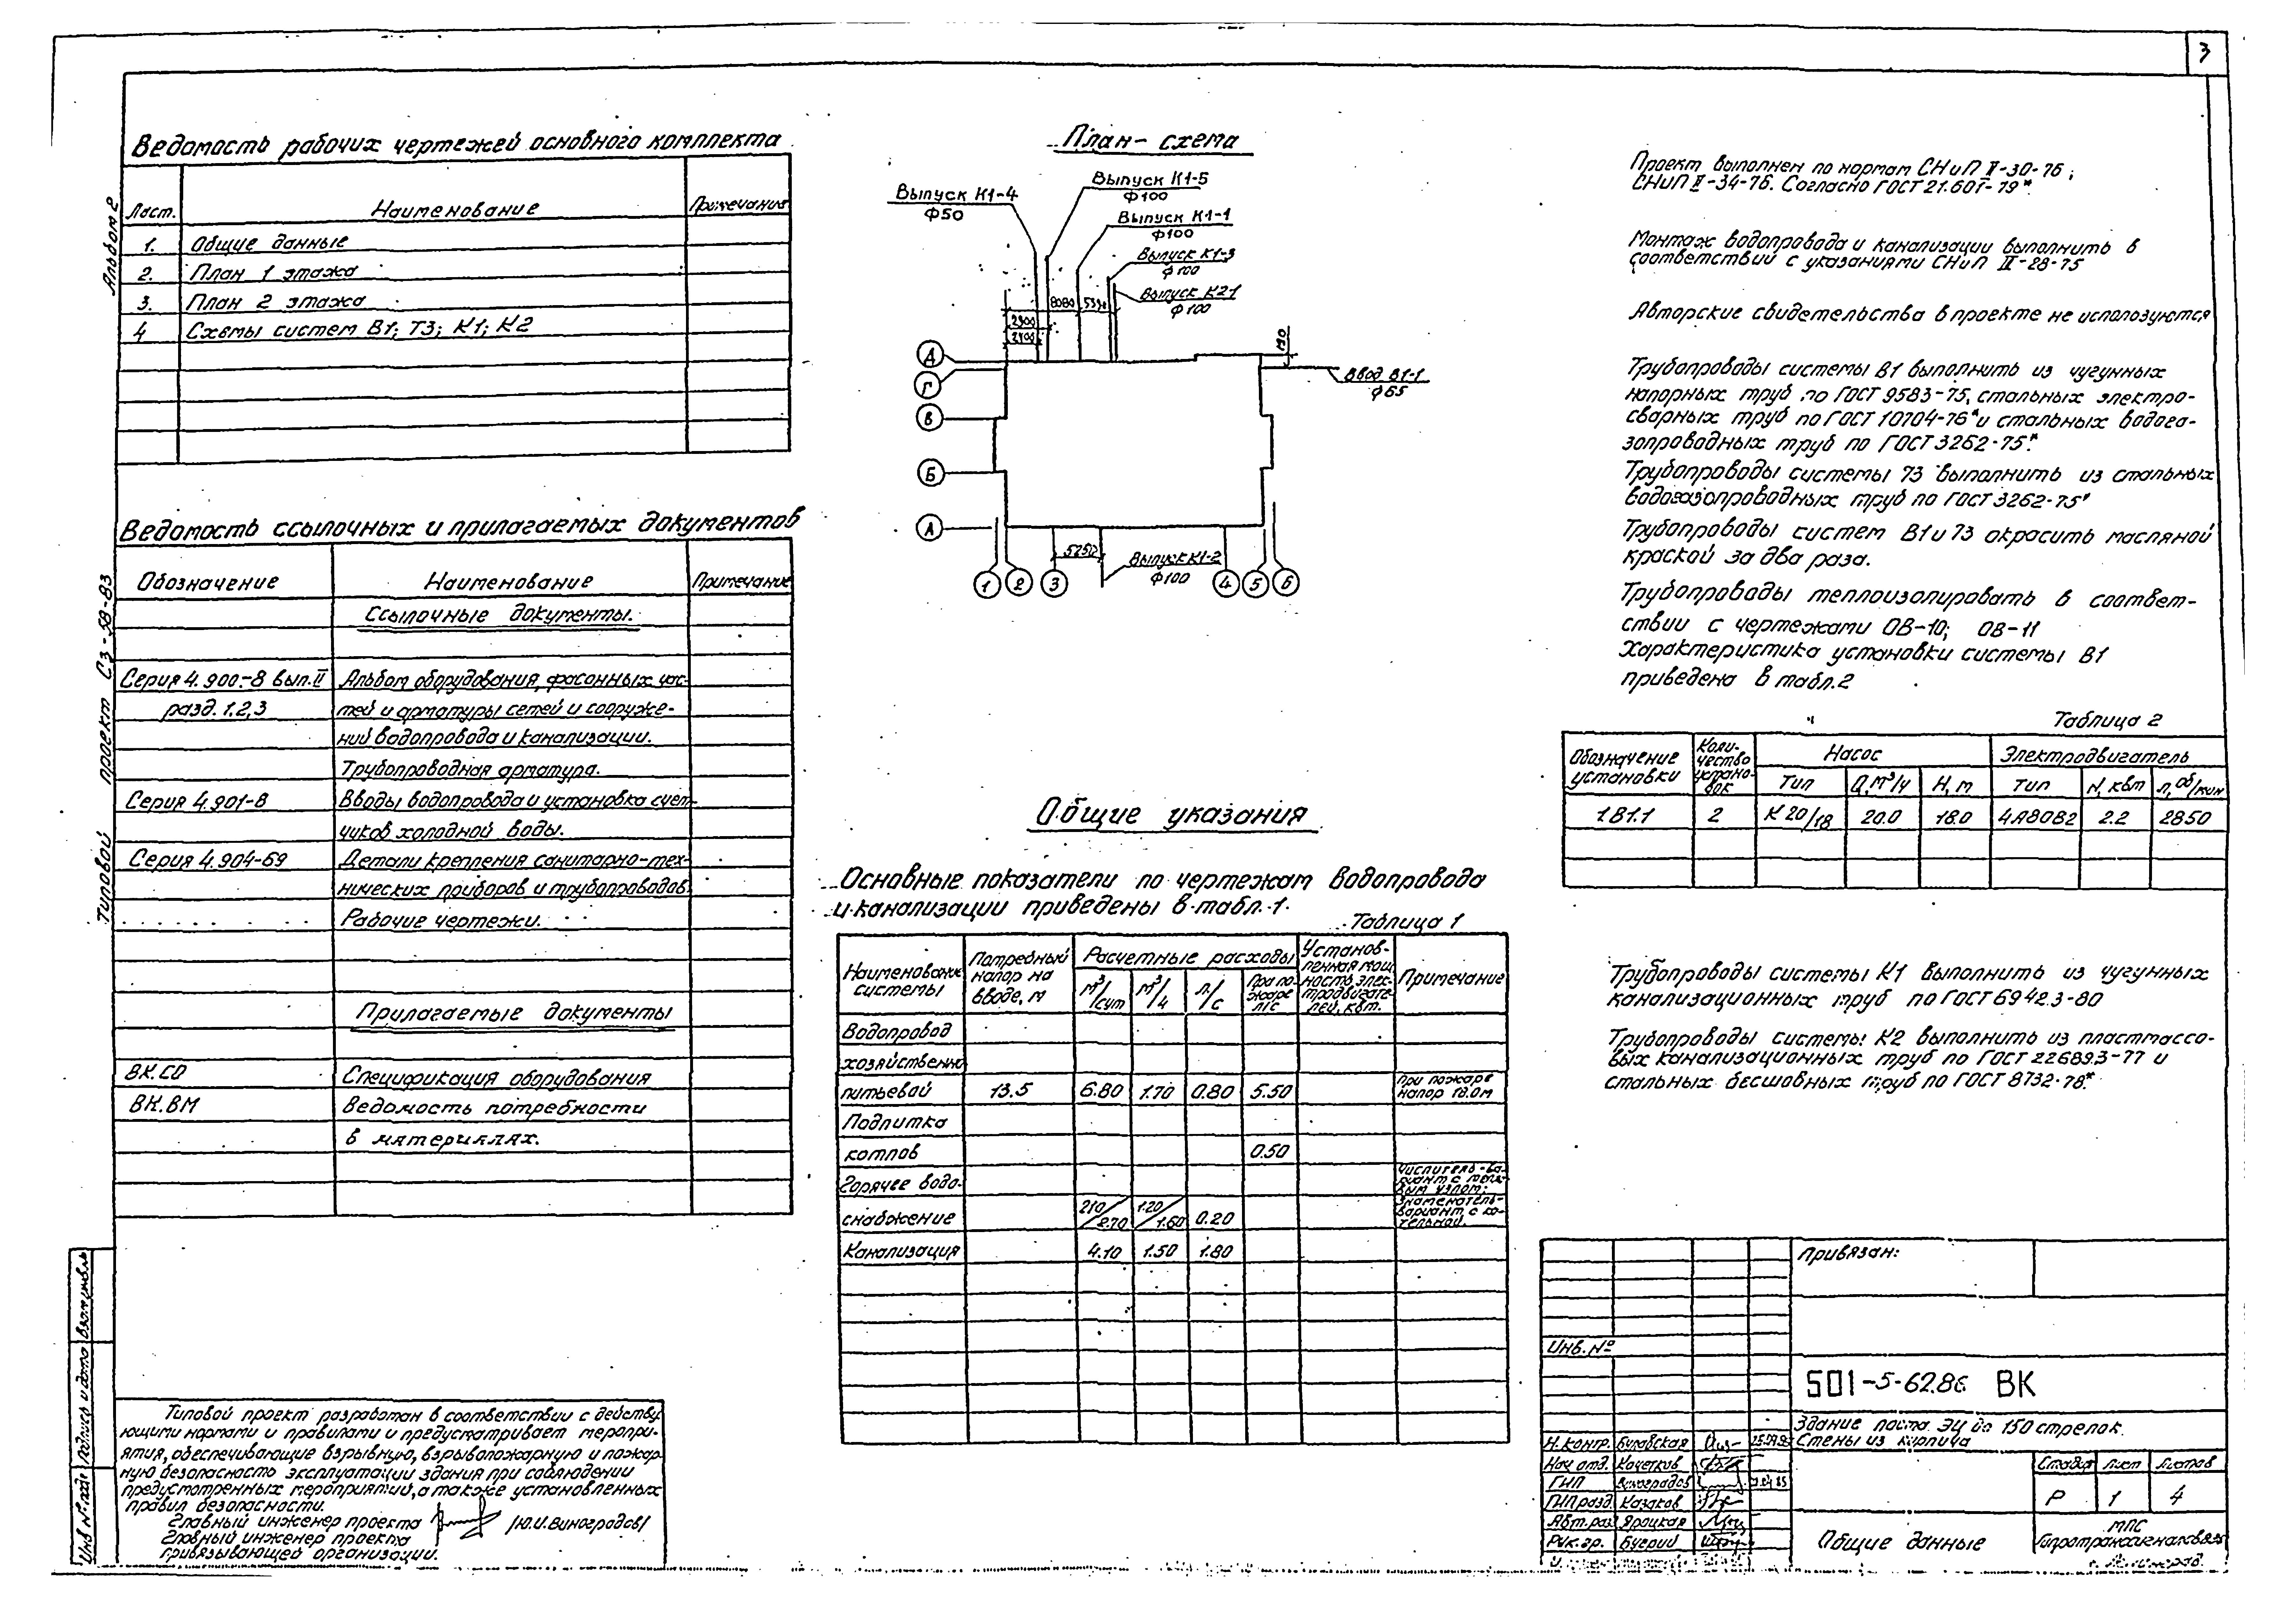 3
Альбом 2
Типовой проект СЗ-58-83
Ведомость рабочих чертежей основного комплекта
Лист. Наименование Примечание
1. Общие данные
2. План 1 этажа
3. План 2 этажа
4 Схемы систем В1; Т3; К1; К2
Ведомость ссылочных и прилагаемых документов
Обозначение Наименование Примечание
Ссылочные документы.
Серия 4.900-8 вып.II Альбом оборудования, фасонных час-
разд. 1,2,3 тей и арматуры сетей и сооруже-
ний водопровода и канализации.
Трубопроводная арматура.
Серия 4.901-8 Вводы водопровода и установка счет-
чиков холодной воды.
Серия 4.904-69 Детали крепления санитарно-тех-
нических приборов и трубопроводов.
Рабочие чертежи.
Прилагаемые документы
ВК.СО Спецификация оборудования
ВК.ВМ Ведомость потребности
в материалах.
Типовой проект разработан в соответствии с действу-
ющими нормами и правилами и предусматривает меропри-
ятия, обеспечивающие взрывную, взрывопожарную и пожар-
ную безопасность эксплуатации здания при соблюдении
предусмотренных мероприятий, а также установленных
правил безопасности.
Главный инженер проекта /Ю.И.Виноградов/
Главный инженер проекта
привязывающей организации.
Инв № подл Подпись и дата Взам инв.№
План-схема
Выпуск К1-4
ф50
Выпуск К1-5
ф100
Выпуск К1-1
ф100
Выпуск К1-3
ф100
Выпуск К2-1
ф100
8080 5330
2900
2400
190
Ввод В1-1
ф65
Д
Г
В
Б
А
5250
Выпуск К1-2
ф100
1 2 3 4 5 6
Общие указания
Основные показатели по чертежам водопровода
и канализации приведены в табл. 1.
Таблица 1
Наименование системы Потребный напор на вводе, м Расчетные расходы Установ-ленная мощ-ность элек-тродвигате-лей, квт. Примечание
м³/сут м³/ч л/с При по-жаре л/с
Водопровод
хозяйственно
питьевой 13.5 6.80 1.70 0.80 5.50 При пожаре напор 18.0м
Подпитка
котлов 0.50
Горячее водо-
снабжение 2.10/2.70 1.20/1.60 0.20 Числитель-ва-риант с тепл-вым узлом; знаменатель-вариант с ко-тельной.
Канализация 4.10 1.50 1.80
Проект выполнен по нормам СНиП II-30-76;
СНиП II-34-76. Согласно ГОСТ 21.601-79*.
Монтаж водопровода и канализации выполнить в
соответствий с указаниями СНиП III-28-75
Авторские свидетельства в проекте не используются
Трубопроводы системы В1 выполнить из чугунных
напорных труб по ГОСТ 9583-75, стальных электро-
сварных труб по ГОСТ 10704-76* и стальных водога-
зопроводных труб по ГОСТ 3262-75*.
Трубопроводы системы Т3 выполнить из стальных
водогазопроводных труб по ГОСТ 3262-75*
Трубопроводы систем В1 и Т3 окрасить масляной
краской за два раза.
Трубопроводы теплоизолировать в соответ-
ствии с чертежами ОВ-10; ОВ-11
Характеристика установки системы В1
приведена в табл.2
Таблица 2
Обозначение установки Коли-чество устано-вок Насос Электродвигатель
Тип Q, м³/ч Н, м Тип N, квт n, об/мин
1В1.1 2 К 20/18 20.0 18.0 4А80В2 2.2 2850
Трубопроводы системы К1 выполнить из чугунных
канализационных труб по ГОСТ 6942.3-80
Трубопроводы системы К2 выполнить из пластмассо-
вых канализационных труб по ГОСТ 22689.3-77 и
стальных бесшовных труб по ГОСТ 8732-78*
Привязан:
Инв.№
501-5-62.86 ВК
Здание поста ЭЦ до 150 стрелок.
Стены из кирпича
Н.контр. Булавская
Нач.отд. Кочетков
ГИП Виноградов
ГИП разд. Казаков
Авт.раз Яроцкая
Рук.гр. Бугрий
Стадия Лист Листов
Р 1 4
Общие данные
МПС
Гипротранссигналсвязь
г. Ленинград